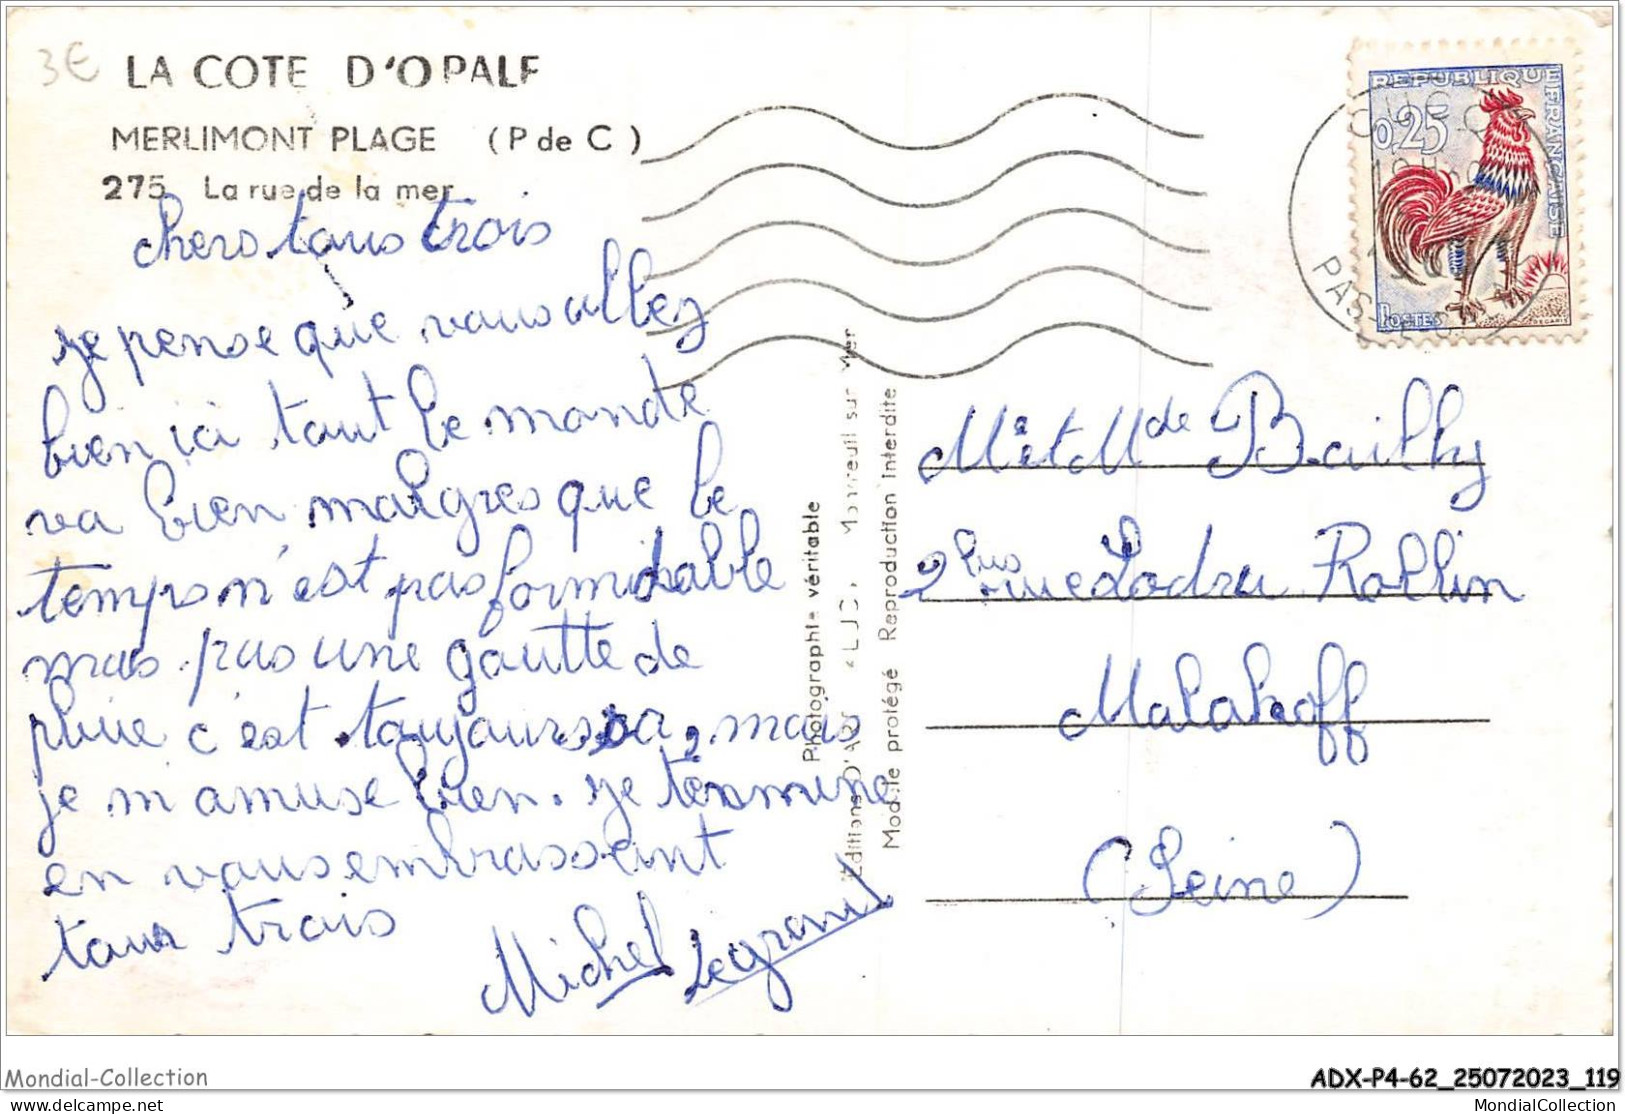 3€
LA COTE D'OPALE
MERLIMONT PLAGE (P de C)
275 La rue de la mer
chers tous trois
je pense que vous allez
bien ici tout le monde
va bien malgres que le
temps n'est pas formidable
mais pas une goutte de
pluie c'est toujours sa, mais
je m'amuse bien. je termine
en vous embrassant
tous trois
Michel Legrand
Photographie véritable
Editions D'Art Montreuil sur Mer
Modèle protégé Reproduction Interdite
REPUBLIQUE
FRANCAISE
0,25
POSTES
DECARIS
CUCQ
PAS
Mr et Mde Bailly
2 rue Ledru Rollin
Malakoff
(Seine)
Mondial-Collection
ADX-P4-62_25072023_119
delcampe.net
MondialCollection